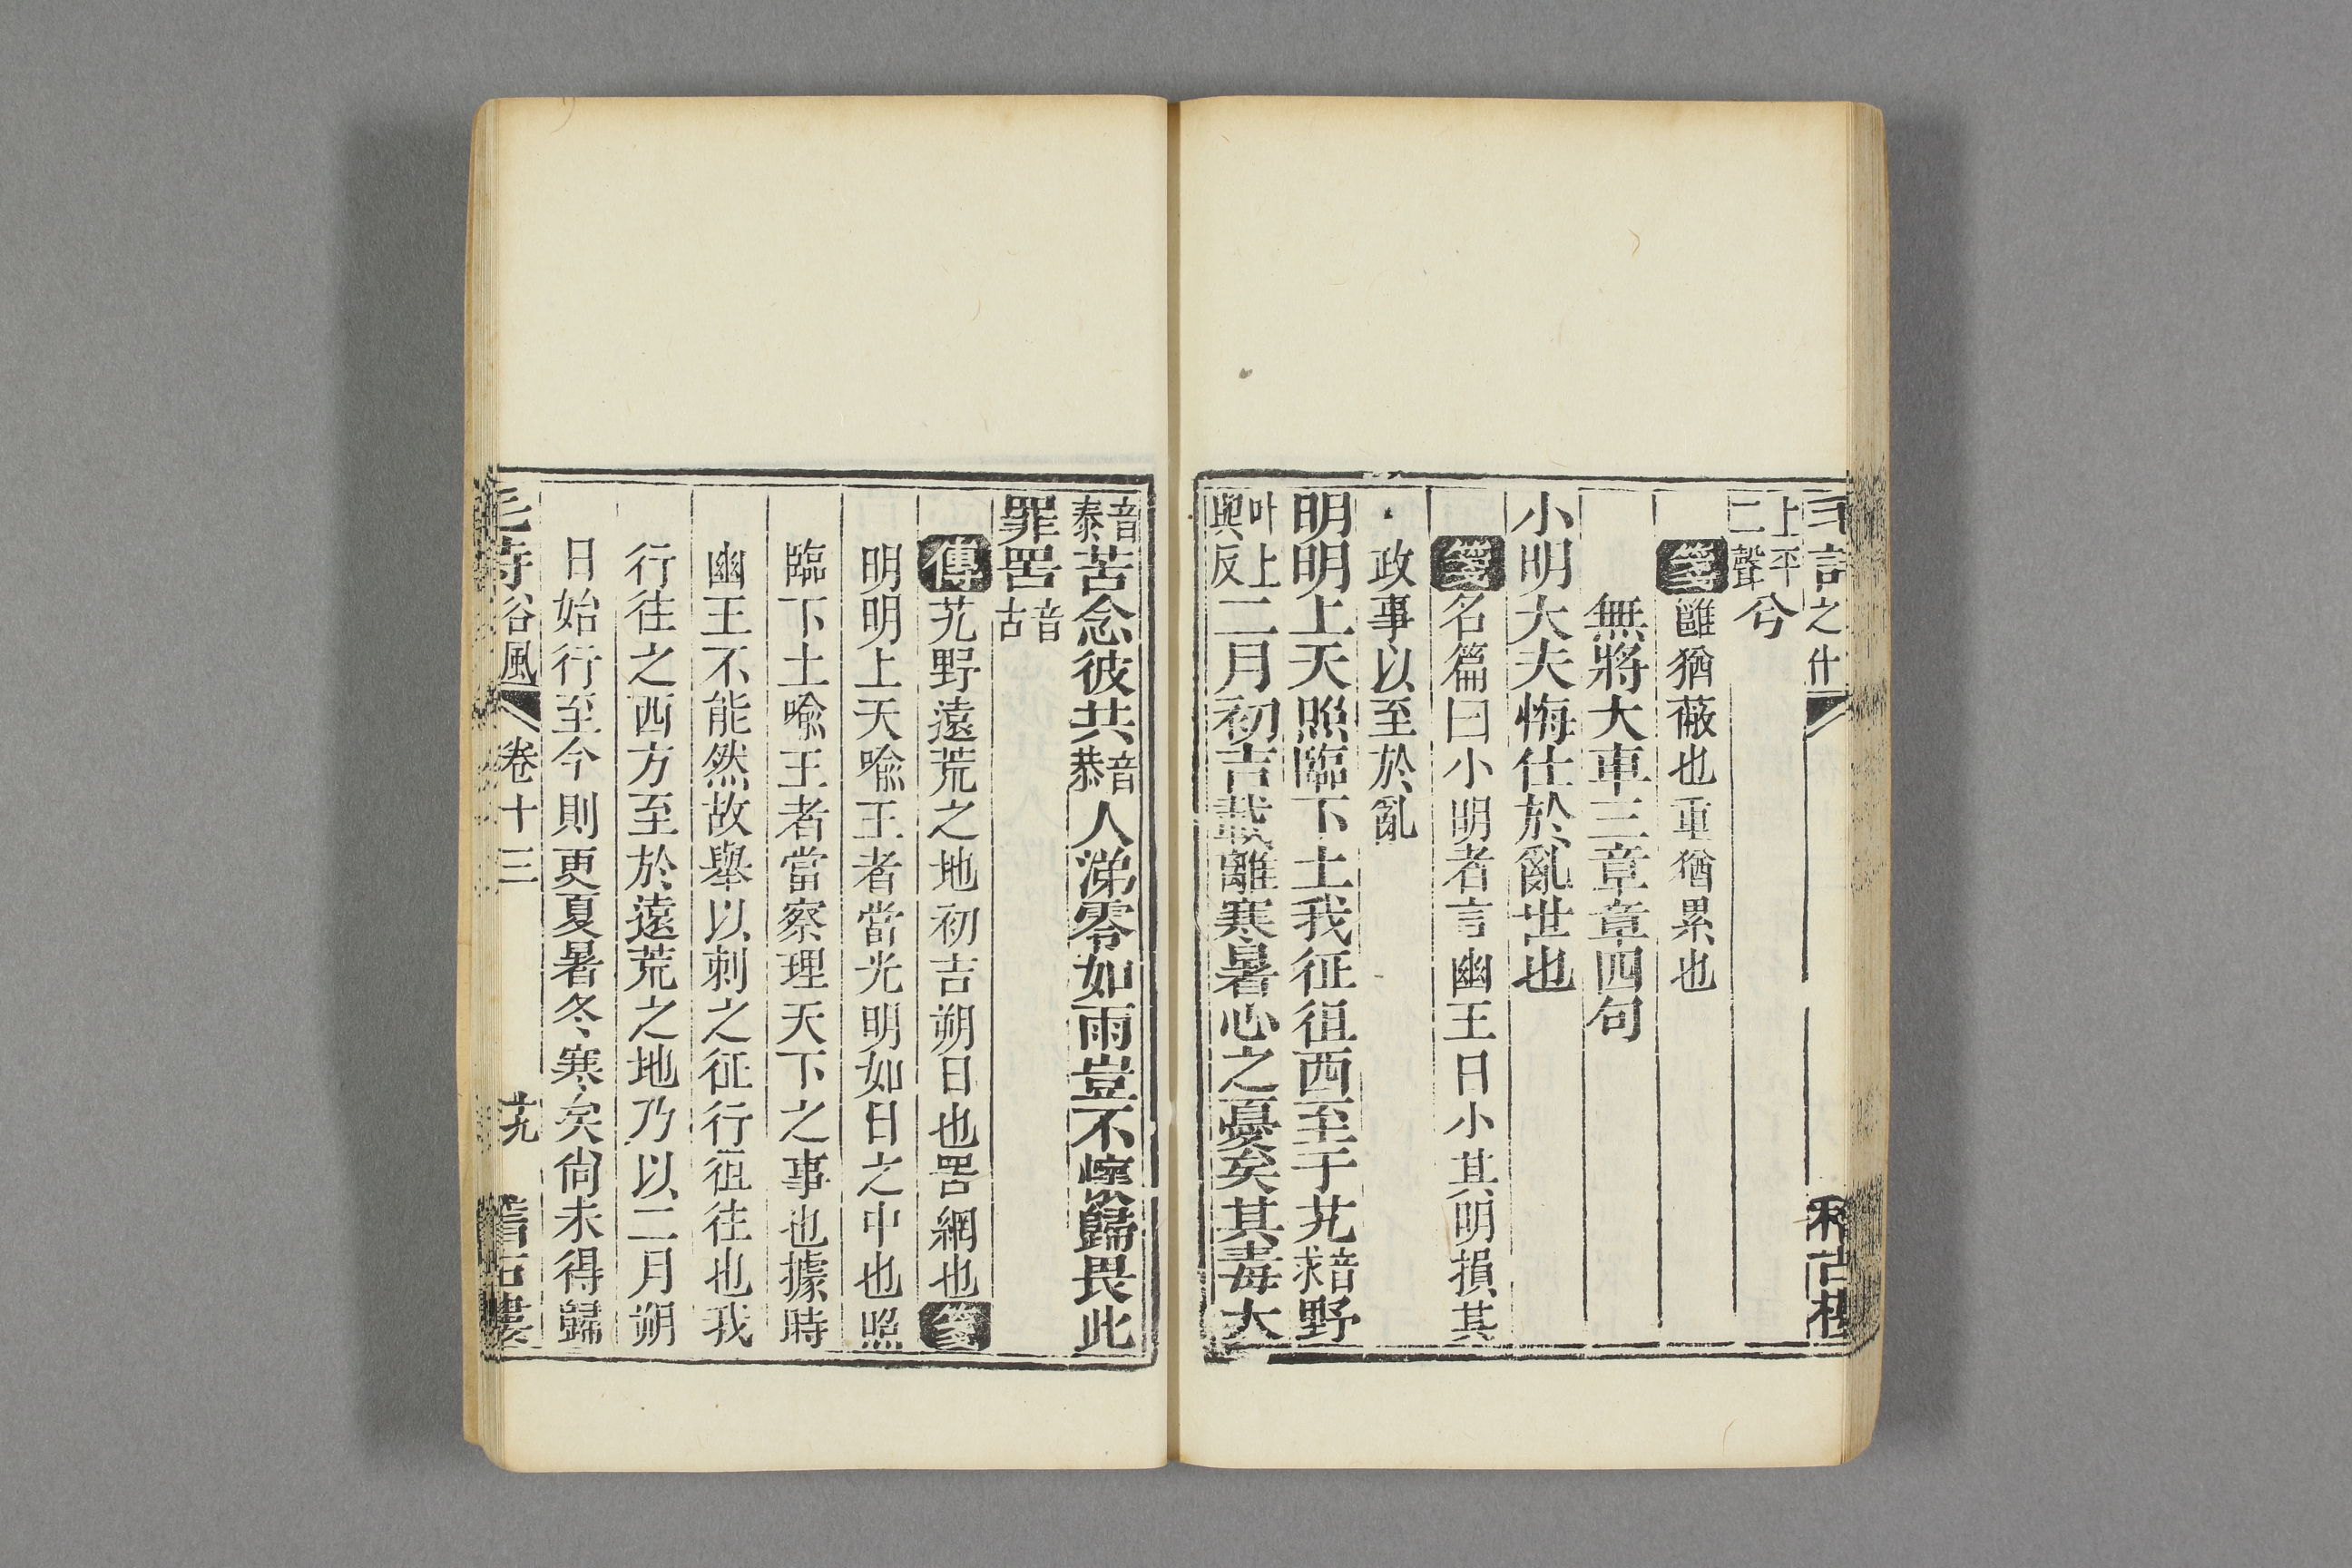 毛詩之什 稽古樓
上平二聲兮
箋雝猶蔽也重猶累也
無將大車三章章四句
小明大夫悔仕於亂世也
箋名篇曰小明者言幽王日小其明損其
政事以至於亂
明明上天照臨下土我征徂西至于艽音求野
叶上與反二月初吉載離寒暑心之憂矣其毒大
音泰苦念彼共音恭人涕零如雨豈不懷歸畏此
罪罟音古
傳艽野遠荒之地初吉朔日也罟網也箋
明明上天喻王者當光明如日之中也照
臨下土喻王者當察理天下之事也據時
幽王不能然故舉以刺之征行徂往也我
行往之西方至於遠荒之地乃以二月朔
日始行至今則更夏暑冬寒矣尚未得歸
毛詩谷風 卷十三 十九 稽古樓